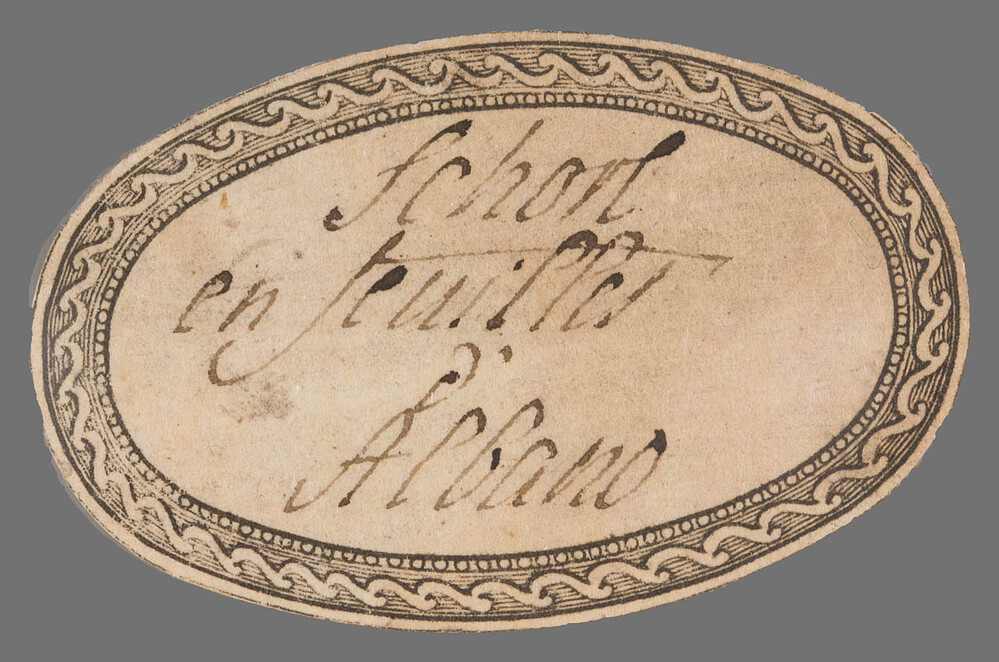 Schorl
en feuilles
d'
Albano